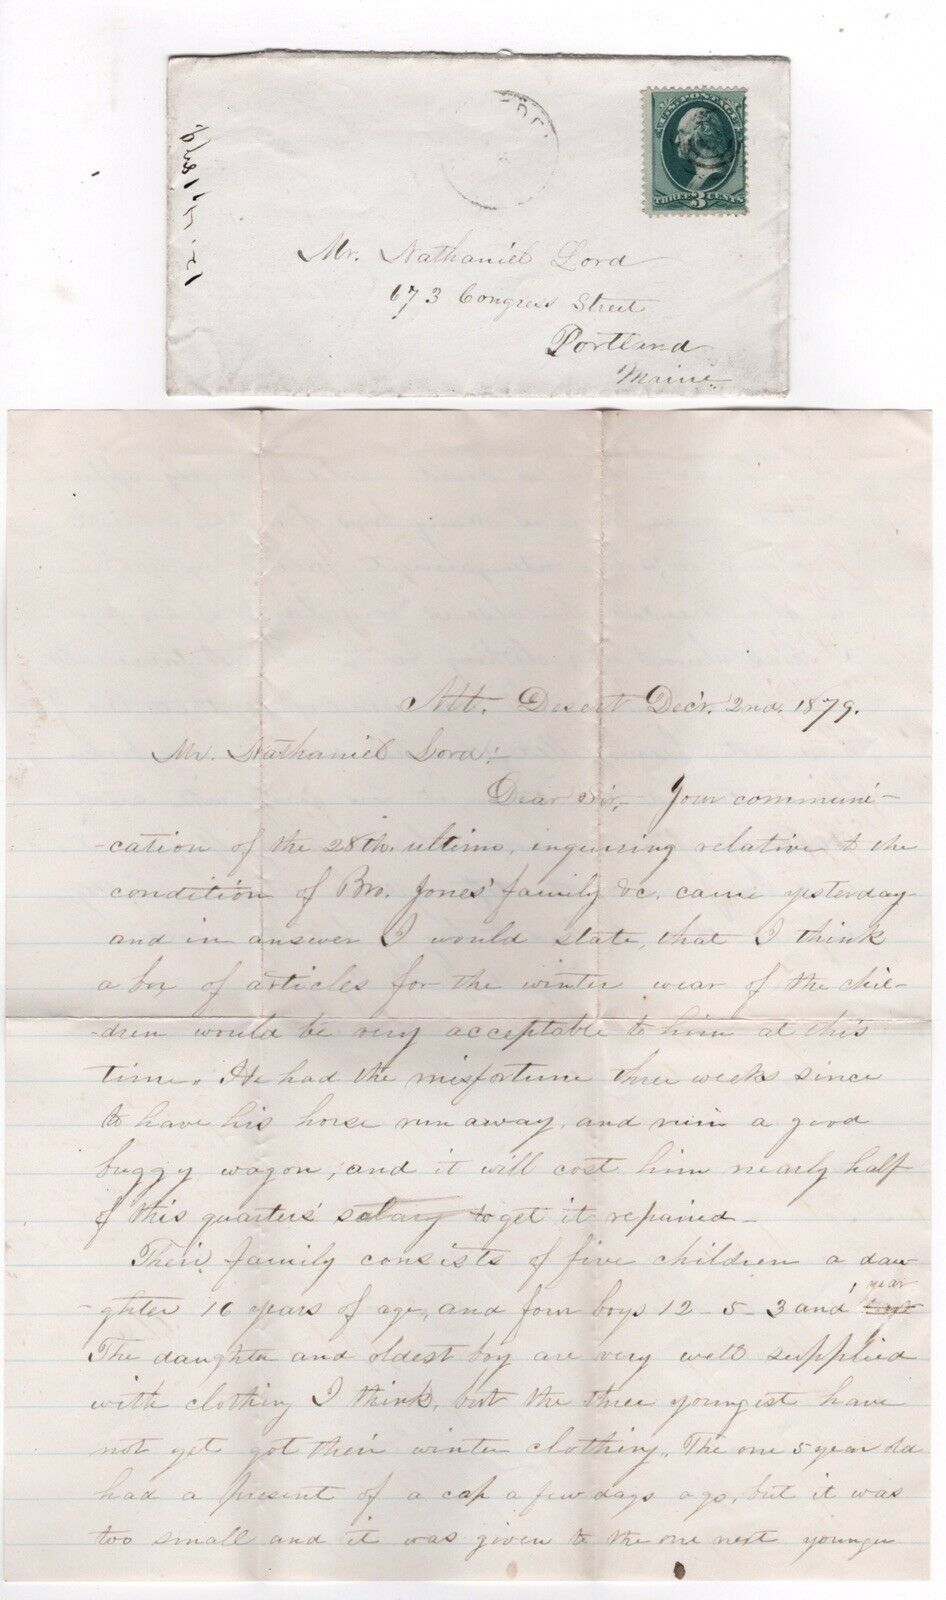 U.S. POSTAGE
THREE 3 CENTS
Mr. Nathaniel Lord
673 Congress Street
Portland
Maine.
Mt. Desert Dec'r. 2nd. 1879.
Mr. Nathaniel Lord:
Dear Sir, Your communi-
-cation of the 28th. ultimo, inquiring relative to the
condition of Bro. Jones' family &c. came yesterday
and in answer I would state, that I think
a box of articles for the winter wear of the chil-
-dren would be very acceptable to him at this
time. He had the misfortune three weeks since
to have his horse run away, and ruin a good
buggy wagon, and it will cost him nearly half
of this quarters' salary to get it repaired-
Their family consists of five children a dau-
-ghter 16 years of age, and four boys 12 - 5 - 3 and 1 year
The daughter and oldest boy are very well supplied
with clothing I think, but the three youngest have
not yet got their winter clothing. The one 5 year old
had a present of a cap a few days ago, but it was
too small and it was given to the one next younger